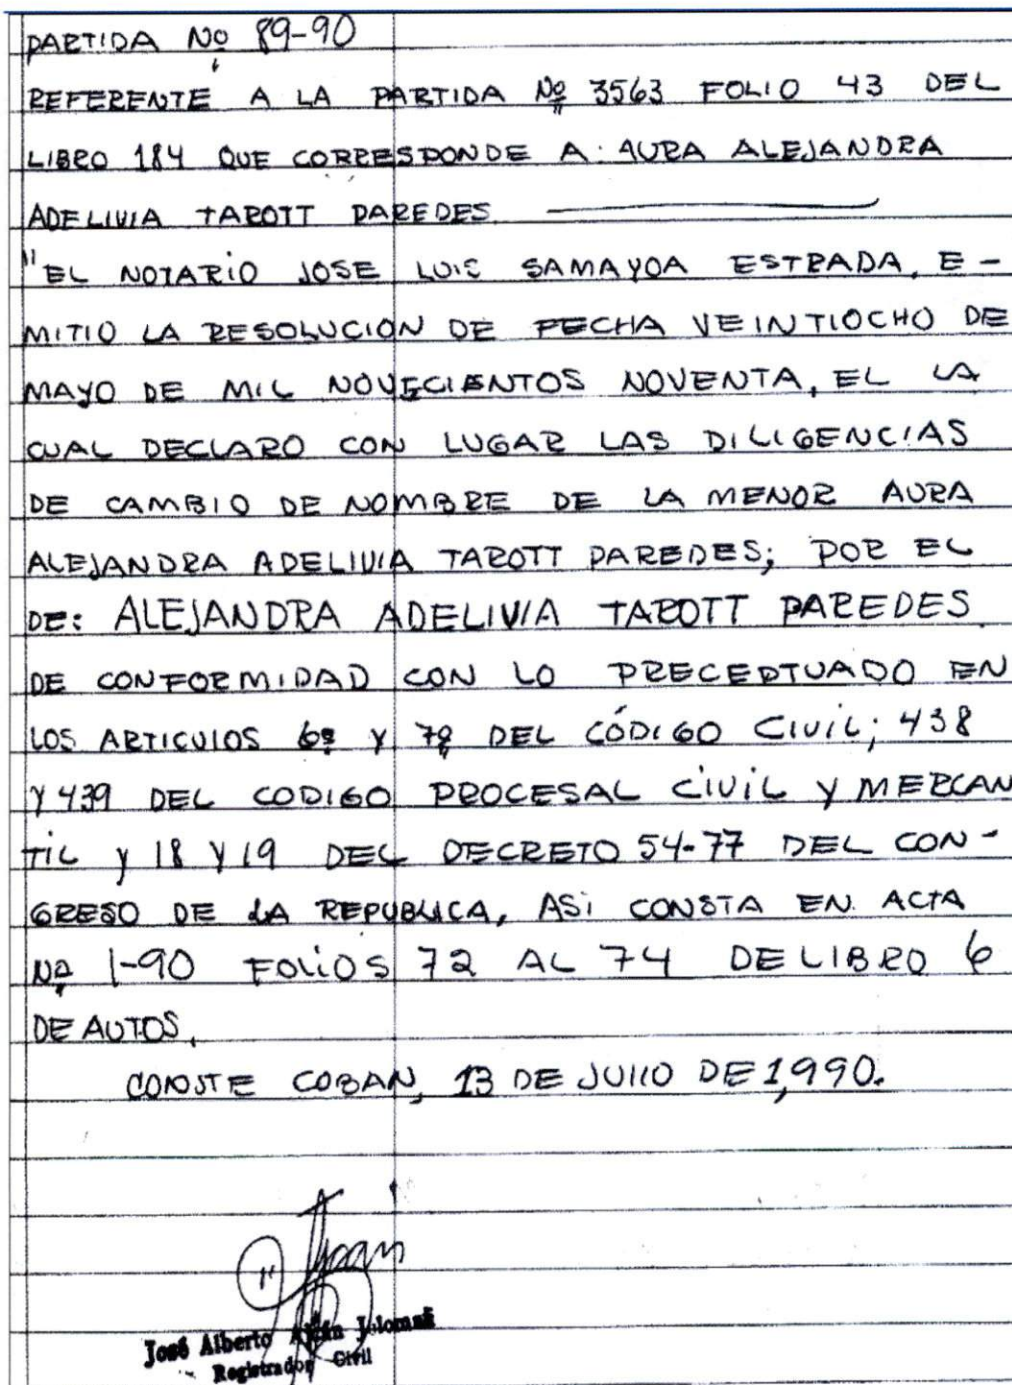 PARTIDA Nº 89-90
REFERENTE A LA PARTIDA Nº 3563 FOLIO 43 DEL
LIBRO 184 QUE CORRESPONDE A: AURA ALEJANDRA
ADELIVIA TAROTT PAREDES
"EL NOTARIO JOSE LUIS SAMAYOA ESTRADA, E-
MITIO LA RESOLUCION DE FECHA VEINTIOCHO DE
MAYO DE MIL NOVECIENTOS NOVENTA, EL LA
CUAL DECLARO CON LUGAR LAS DILIGENCIAS
DE CAMBIO DE NOMBRE DE LA MENOR AURA
ALEJANDRA ADELIVIA TAROTT PAREDES; POR EL
DE: ALEJANDRA ADELIVIA TAROTT PAREDES.
DE CONFORMIDAD CON LO PRECEPTUADO EN
LOS ARTICULOS 6º Y 7º DEL CÓDIGO CIVIL; 438
Y 439 DEL CODIGO PROCESAL CIVIL Y MERCAN
TIL Y 18 Y 19 DEL DECRETO 54-77 DEL CON-
GRESO DE LA REPUBLICA, ASI CONSTA EN ACTA
Nº 1-90 FOLIOS 72 AL 74 DE LIBRO 6
DE AUTOS.
CONSTE COBAN, 13 DE JULIO DE 1,990.
José Alberto
Registrador Civil